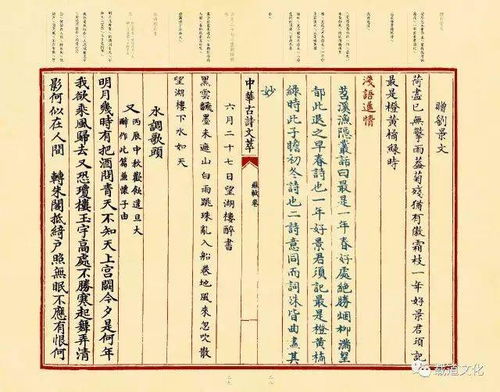 贈劉景文
荷盡已無擎雨蓋菊殘猶有傲霜枝一年好景君須記
最是橙黃橘綠時
淺語遙情
苕溪漁隱叢話曰最是一年春好處絕勝烟柳滿皇
都此退之早春詩也一年好景君須記最是橙黃橘
綠時此子瞻初冬詩也二詩意同而詞殊皆曲盡其
妙
中華古詩文萃
蘇軾卷
六月二十七日望湖樓醉書
黑雲翻墨未遮山白雨跳珠亂入船卷地風來忽吹散
望湖樓下水如天
水調歌頭
又
丙辰中秋歡飲達旦大
醉作此篇兼懷子由
明月幾時有把酒問青天不知天上宮闕今夕是何年
我欲乘風歸去又恐瓊樓玉宇高處不勝寒起舞弄清
影何似在人間 轉朱閣抵綺戶照無眠不應有恨何
載道文化